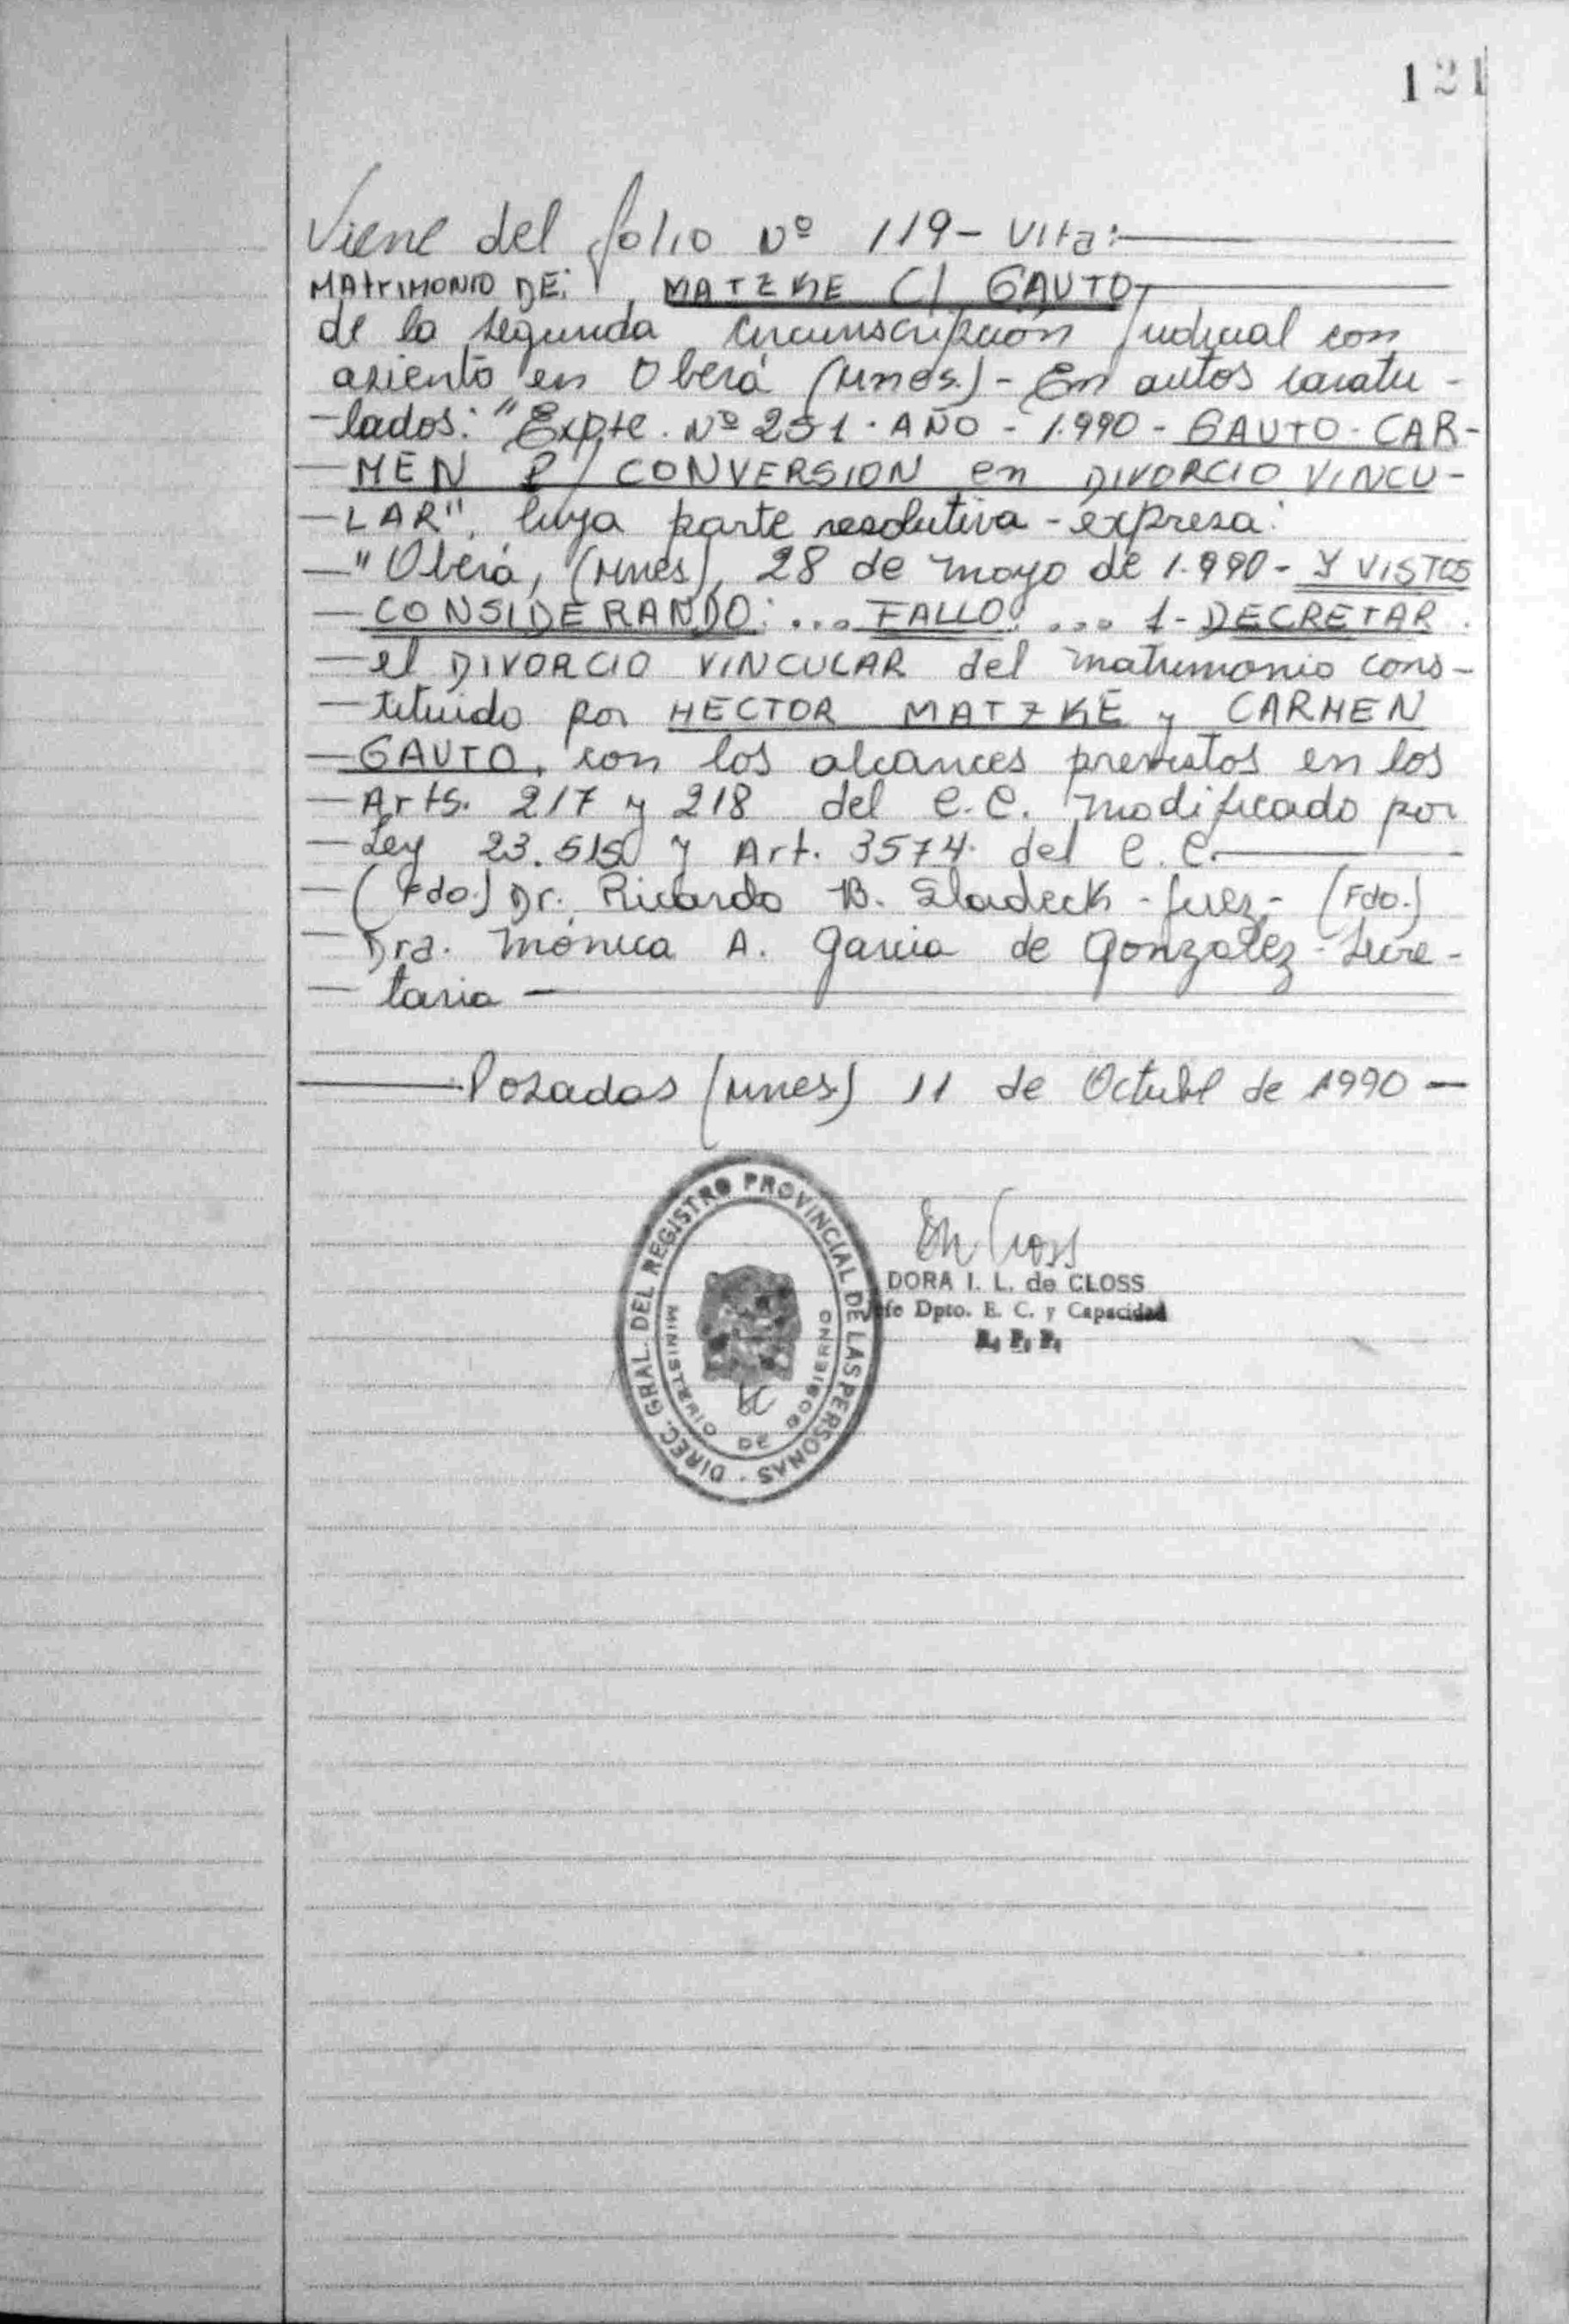 121
Viene del folio Nº 119- Vlta:
MAtrIMONIO DE: MATZKE C/ GAUTO
de la segunda Circunscripción Judicial con
asiento en Oberá (Mnes.) - En autos caratu-
lados: "Expte. Nº 251. AÑO - 1.990 - GAUTO - CAR-
MEN P/ CONVERSION en DIVORCIO VINCU-
LAR", cuya parte resolutiva - expresa:
"Oberá, (Mnes), 28 de mayo de 1.990 - Y VISTOS
CONSIDERANDO: ... FALLO: ... 1- DECRETAR
el DIVORCIO VINCULAR del matrimonio cons-
tituido por HECTOR MATZKE y CARMEN
GAUTO, con los alcances previstos en los
Arts. 217 y 218 del C.C. modificado por
Ley 23.515 y Art. 3574. del C.C.
(Fdo.) Dr. Ricardo B. Sladeck - Juez - (Fdo.)
Dra. Mónica A. Garcia de Gonzalez - Secre-
taria
Posadas (Mnes.) 11 de Octubre de 1990
DIREC. GRAL. DEL REGISTRO PROVINCIAL DE LAS PERSONAS
MINISTERIO DE GOBIERNO
DORA I. L. de CLOSS
Jefe Dpto. E. C. y Capacidad
R. P. P.